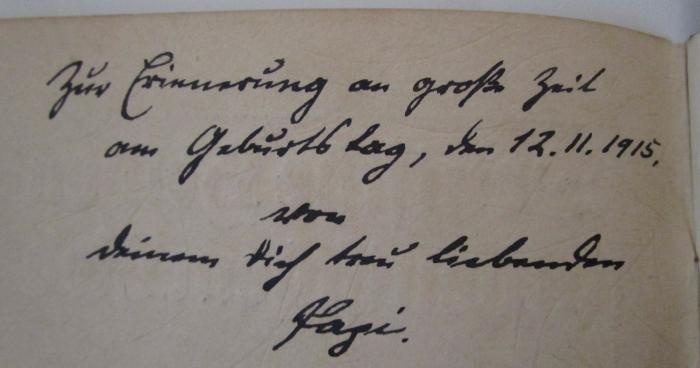 Zur Erinnerung an große Zeit
am Geburtstag, den 12.11.1915.
von
deinem dich treu liebenden
Papi.